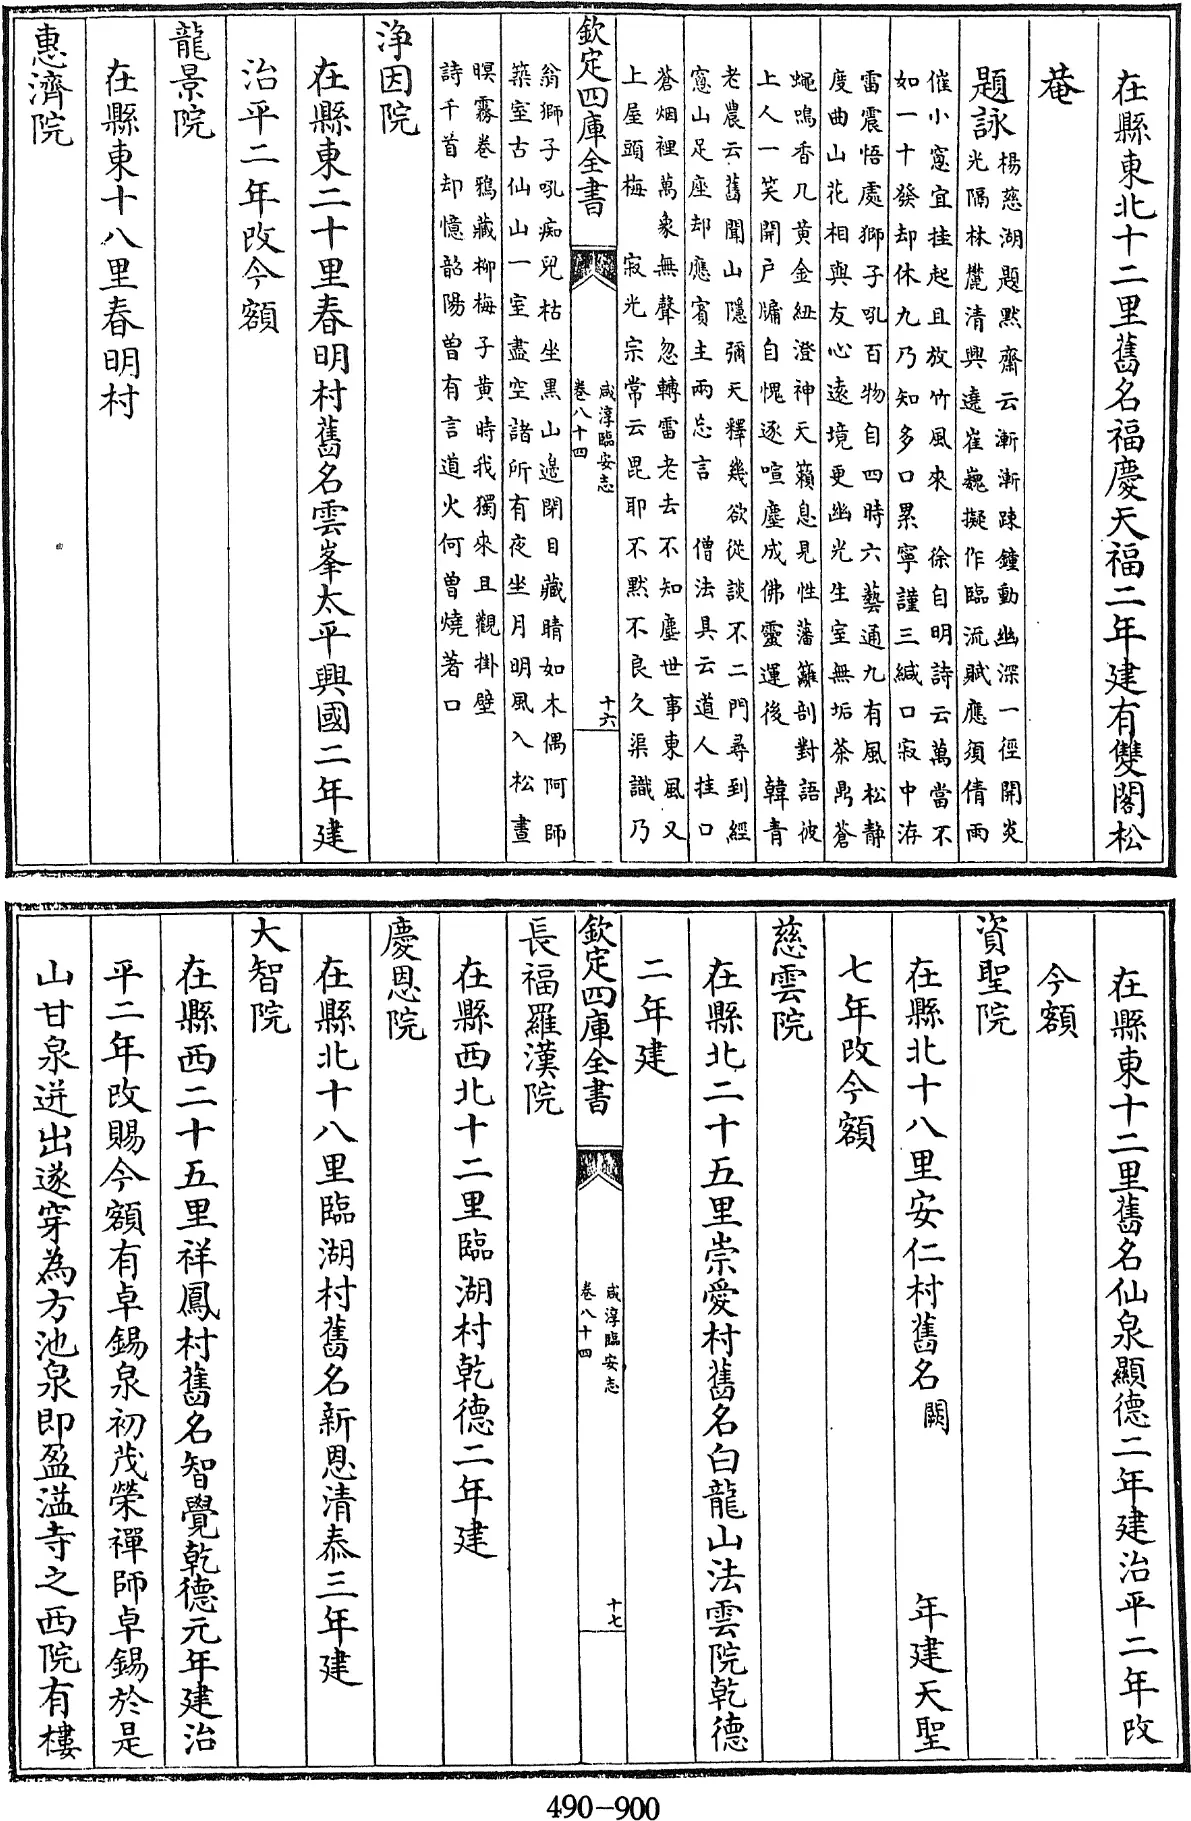 在縣東北十二里舊名福慶天福二年建有雙閣松
菴
題詠
楊慈湖題默齋云漸漸踈鐘動幽深一徑開炎
光隔林麓清興遶崔巍擬作臨流賦應須倩雨
催小窓宜挂起且放竹風來　徐自明詩云萬當不
如一十發却休九乃知多口累寧謹三緘口寂中洊
雷震悟處獅子吼百物自四時六藝通九有風松靜
度曲山花相與友心遠境更幽光生室無垢茶鼎蒼
蠅鳴香几黄金紐澄神天籟息見性藩籬剖對語彼
上人一笑開戶牖自愧逐喧塵成佛靈運後　韓青
老農云舊聞山隱彌天釋幾欲從談不二門尋到經
窓山足座却應賓主兩忘言　僧法具云道人挂口
蒼烟裡萬象無聲忽轉雷老去不知塵世事東風又
上屋頭梅　寂光宗常云毘耶不默不良久渠識乃
欽定四庫全書
咸淳臨安志
卷八十四
十六
翁獅子吼痴兒枯坐黑山邊閉目藏睛如木偶阿師
築室古仙山一室盡空諸所有夜坐月明風入松晝
暝霧卷鴉藏柳梅子黄時我獨來且觀掛壁
詩千首却憶韶陽曾有言道火何曾燒著口
淨因院
在縣東二十里春明村舊名雲峯太平興國二年建
治平二年改今額
龍景院
在縣東十八里春明村
惠濟院
在縣東十二里舊名仙泉顯德二年建治平二年改
今額
資聖院
在縣北十八里安仁村舊名闕　年建天聖
七年改今額
慈雲院
在縣北二十五里崇愛村舊名白龍山法雲院乾德
二年建
欽定四庫全書
咸淳臨安志
卷八十四
十七
長福羅漢院
在縣西北十二里臨湖村乾德二年建
慶恩院
在縣北十八里臨湖村舊名新恩清泰三年建
大智院
在縣西二十五里祥鳳村舊名智覺乾德元年建治
平二年改賜今額有卓錫泉初茂榮禪師卓錫於是
山甘泉迸出遂穿為方池泉即盈溢寺之西院有樓
490-900